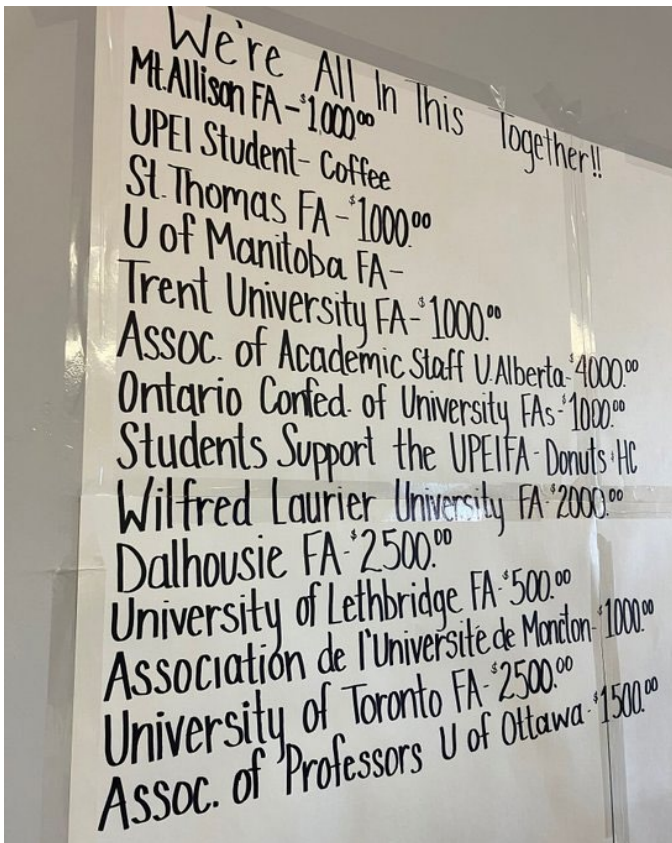 We're All In This Together!!
Mt. Allison FA - $1000.00
UPEI Student - Coffee
St. Thomas FA - $1000.00
U of Manitoba FA -
Trent University FA - $1000.00
Assoc. of Academic Staff U.Alberta - $4000.00
Ontario Confed. of University FAs - $1000.00
Students Support the UPEIFA - Donuts + HC
Wilfred Laurier University FA - $2000.00
Dalhousie FA - $2500.00
University of Lethbridge FA - $500.00
Association de l'Université de Moncton - $1000.00
University of Toronto FA - $2500.00
Assoc. of Professors U of Ottawa - $1500.00